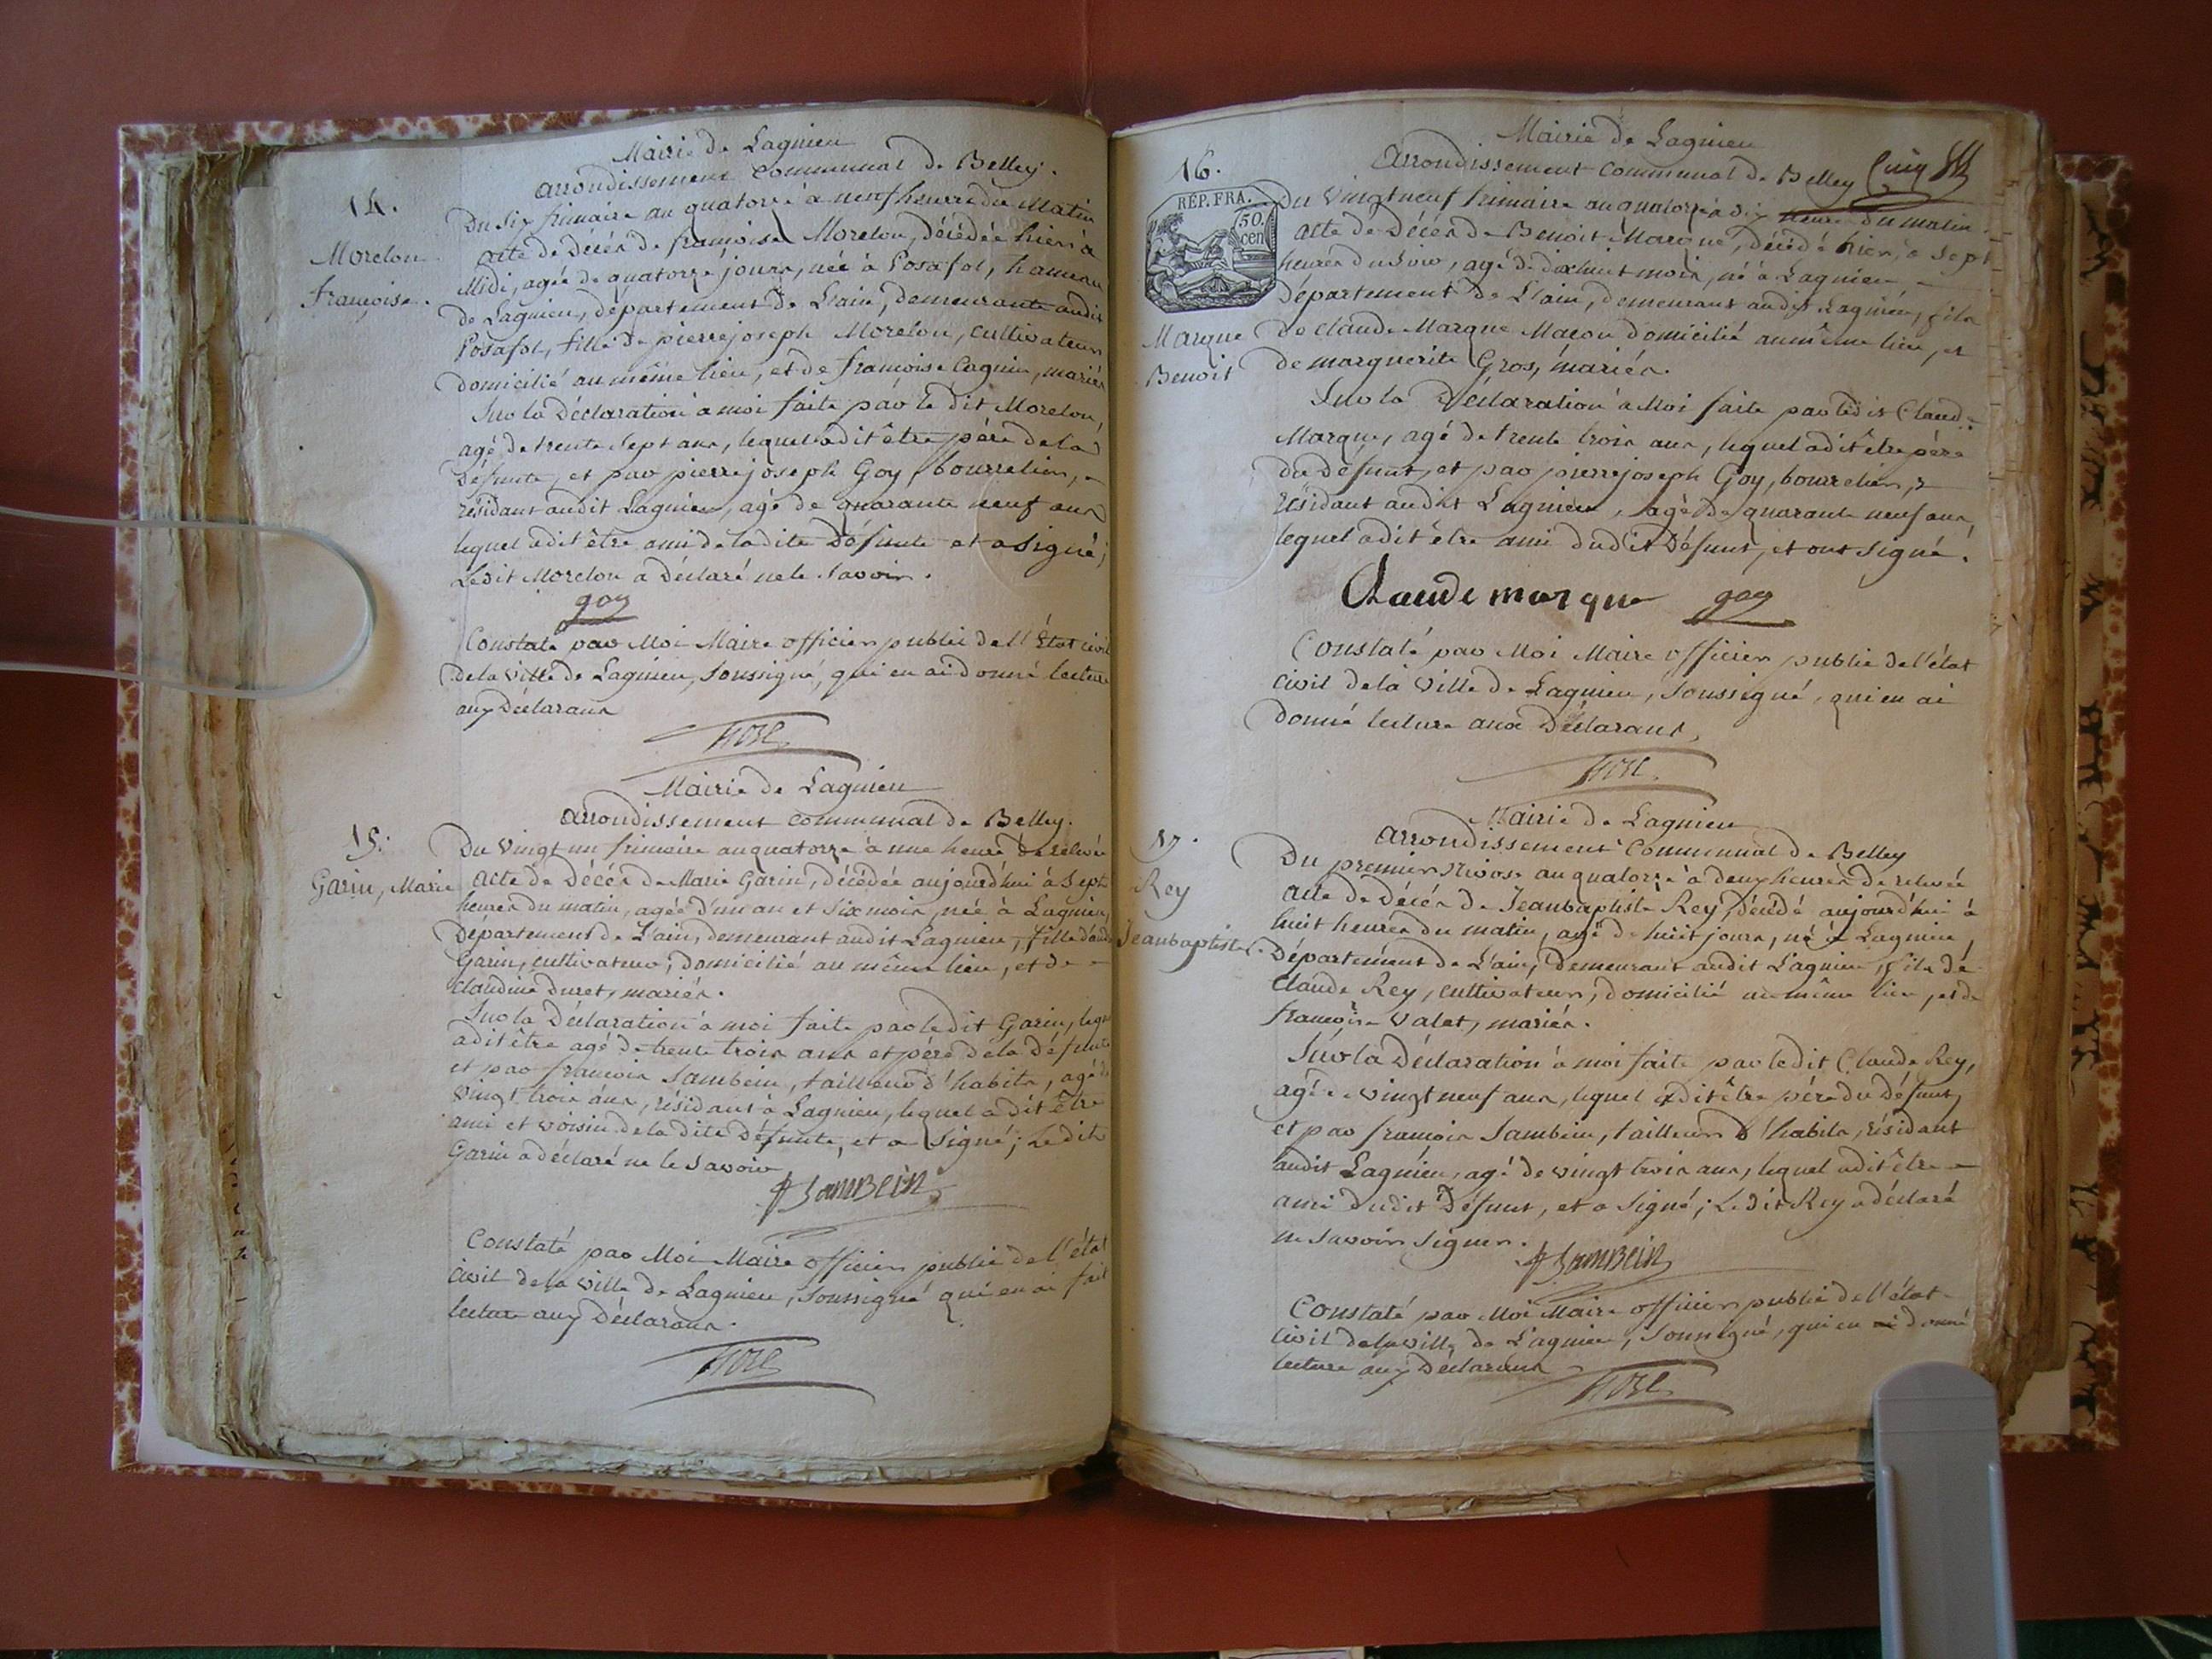 Mairie de Lagnieu
arrondissement communal de Belley.
14.
Morelon
françoise.
Du six frimaire an quatorze à neuf heures du Matin
acte de Décès de françoise Morelon, décédée hier à
Midi, agée de quatorze jours, née à Posafol, hameau
de Lagnieu, département de L'ain, demeurante audit
Posafol, fille de pierre joseph Morelon, cultivateur
domicilié au même lieu, et de françoise Cagnin, mariés
Sur la Déclaration à moi faite par le dit Morelon,
agé de trente sept ans, lequel a dit être père de la
Défunte, et par pierre joseph Goy, bourrelier,
résidant audit Lagnieu, agé de quarante neuf ans
lequel a dit être ami de ladite Défunte et a signé;
Ledit Morelon a Déclaré ne le savoir.
goy
Constaté par Moi Maire officier public de l'État civil
de la ville de Lagnieu, soussigné, qui en ai donné lecture
aux Déclarans
Mairie de Lagnieu
arrondissement communal de Belley.
15.
Garin, Marie
Du vingt un frimaire an quatorze à une heure de relevée
acte de Décès de Marie Garin, décédée aujourd'hui à sept
heures du matin, agée d'un an et six mois, née à Lagnieu,
Département de L'ain, demeurant audit Lagnieu, fille d'
Garin, cultivateur, domicilié au même lieu, et de
Claudine Duret, mariés.
Sur la Déclaration à moi faite par le dit Garin, lequel
a dit être agé de trente trois ans et père de la défunte
et par françois Sambein, tailleur d'habits, agé de
vingt trois ans, résidant à Lagnieu, lequel a dit être
ami et voisin de la dite Défunte, et a signé; Le dit
Garin a déclaré ne le savoir
f SamBein
Constaté par Moi Maire officier public de l'état
civil de la ville de Lagnieu, soussigné qui en ai fait
lecture aux Déclarans.
Mairie de Lagnieu
Arrondissement communal de Belley
16.
RÉP. FRA.
50.
cen
Marque
Benoit
Du vingt neuf frimaire an quatorze à dix heures du matin.
acte de Décès de Benoit Marque, décédé hier, à sept
heures du soir, agé de dix huit mois, né à Lagnieu,
Département de L'ain, demeurant audit Lagnieu, fils
de claude Marque Maçon domicilié au même lieu, et
de marguerite Gros, mariés.
Sur la Déclaration à Moi faite par ledit Claude
Marque, agé de trente trois ans, lequel a dit être père
du Défunt, et par pierre joseph Goy, bourrelier,
résidant audit Lagnieu, agé de quarante neuf ans,
lequel a dit être ami dudit Défunt, et ont signé.
Claude marque goy
Constaté par Moi Maire officier public de l'état
civil de la Ville de Lagnieu, soussigné, qui en ai
donné lecture aux Déclarans,
Mairie de Lagnieu
arrondissement Communal de Belley
17.
Rey
Jean baptiste.
Du premier Nivose an quatorze à deux heures de relevée
acte de Décès de Jean baptiste Rey, décédé aujourd'hui à
huit heures du matin, agé de huit jours, né à Lagnieu,
Département de L'ain, demeurant audit Lagnieu, fils de
Claude Rey, cultivateur, domicilié au même lieu, et de
françoise Valet, mariés.
Sur la Déclaration à moi faite par le dit Claude Rey,
agé de vingt neuf ans, lequel a dit être père du Défunt,
et par françois Sambein, tailleur d'habits, résidant
audit Lagnieu, agé de vingt trois ans, lequel a dit être
ami dudit Défunt, et a signé; Le dit Rey a déclaré
ne savoir signer.
f SamBein
Constaté par Moi Maire officier public de l'état
civil de la ville de Lagnieu, soussigné, qui en ai donné
lecture aux Déclarans